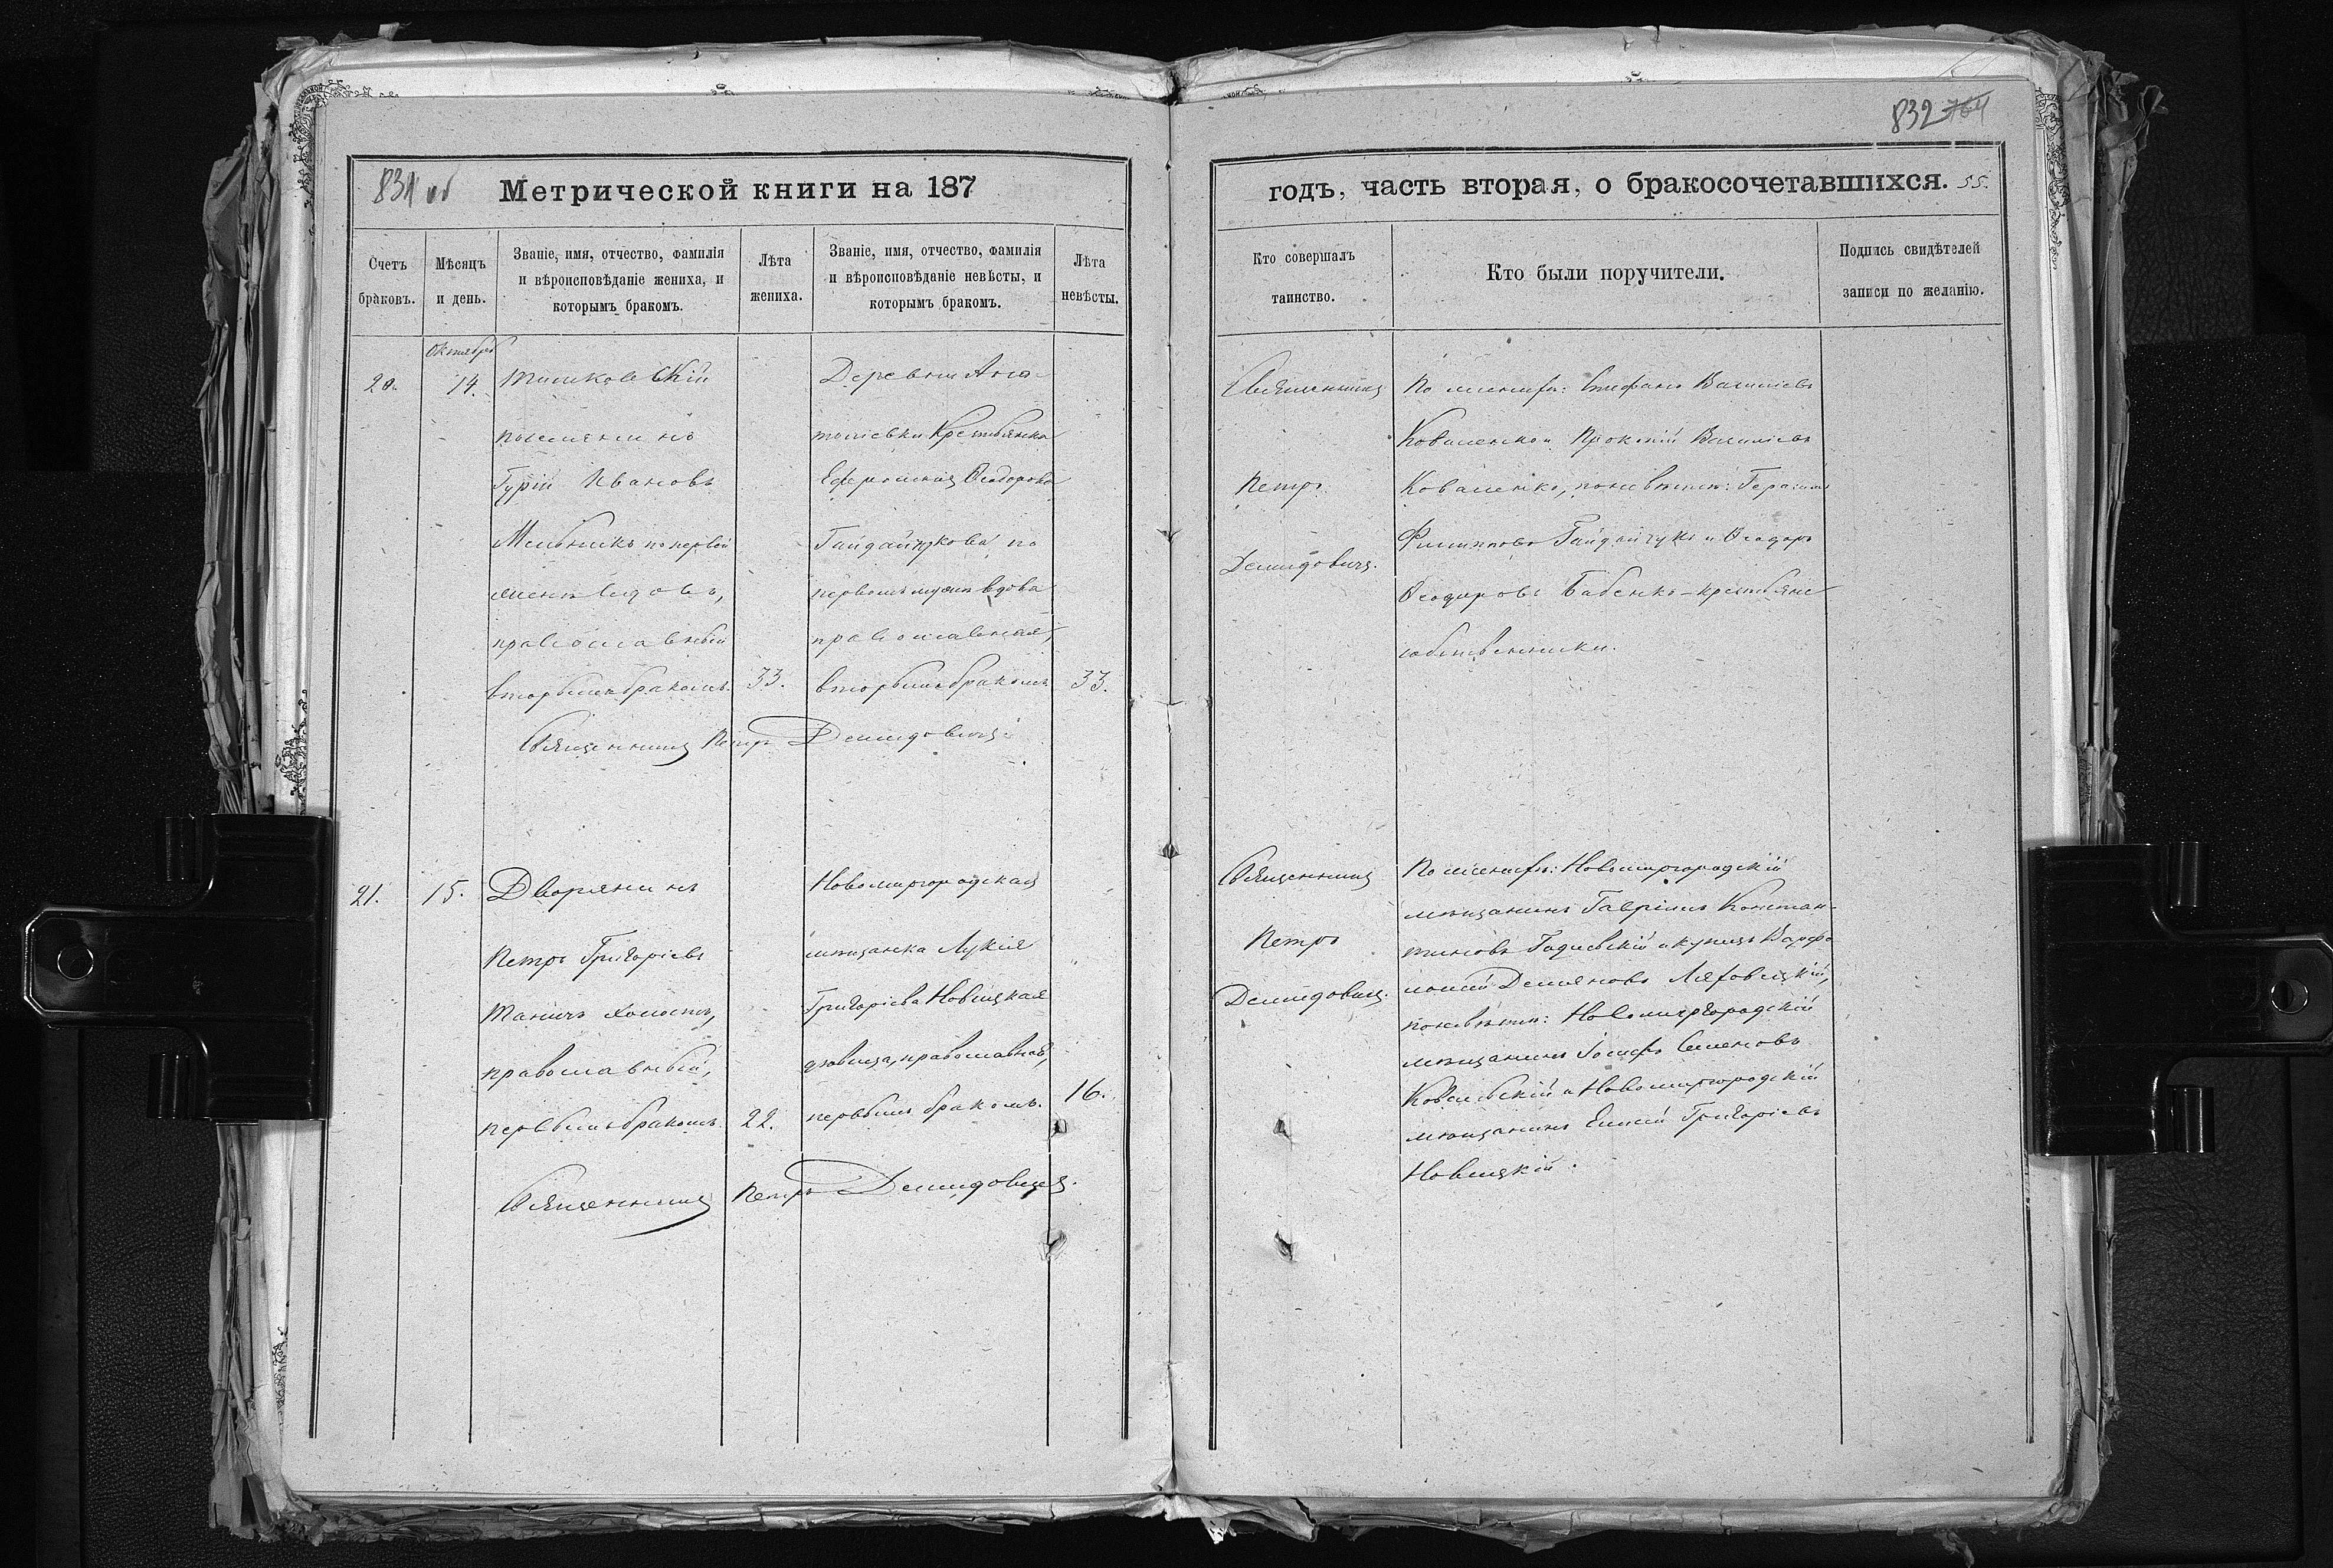 831 об
Метрической книги на 187
Счетъ браковъ.
Мѣсяцъ и день.
Званіе, имя, отчество, фамилія
и вѣроисповѣданіе жениха, и
которымъ бракомъ.
Лѣта жениха.
Званіе, имя, отчество, фамилія
и вѣроисповѣданіе невѣсты, и
которымъ бракомъ.
Лѣта невѣсты.
Октября
20.
14.
поселянинъ
Гурій Ивановъ
Мельникъ по первой
женѣ вдовъ,
православный
вторымъ бракомъ.
33.
Деревни Ана-
толіевки Крестьянка
Ефросинія Ѳеодорова
по
первомъ мужѣ вдова
православная,
вторымъ бракомъ
33.
Священникъ Петръ Демидовичъ
21.
15.
Дворянинъ
Петръ Григоріевъ
холостъ,
православный,
первымъ бракомъ
22.
Новомиргородская
мѣщанка Лукія
Григоріева Новицкая
дѣвица, православная,
первымъ бракомъ.
16.
Священникъ Петръ Демидовичъ.
832 764
годъ, часть вторая, о бракосочетавшихся. 55.
Кто совершалъ
таинство.
Кто были поручители.
Подпись свидѣтелей
записи по желанію.
Священникъ
Петръ
Демидовичъ.
По женихѣ: Стефанъ Василіевъ
Коваленко и Василіевъ
Коваленко, по невѣстѣ: Герасимъ
Филипповъ Гайдайчукъ и Ѳеодоръ
Ѳеодоровъ Бабенко - крестьяне
собственники.
Священникъ
Петръ
Демидовичъ.
По женихѣ: Новомиргородскій
мѣщанинъ Гавріилъ Констан-
тиновъ и купецъ Варфо-
ломей Демяновъ Ляховецкій,
по невѣстѣ: Новомиргородскій
мѣщанинъ Іосифъ Семеновъ
Ковальскій и Новомиргородскій
мѣщанинъ Елисей Григоріевъ
Новицкій.